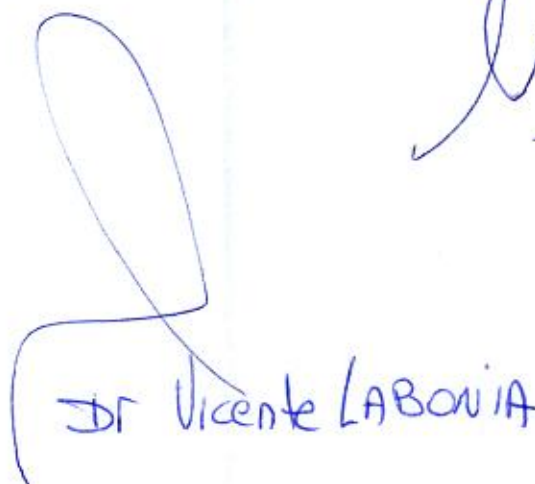 Dr Vicente LABONIA